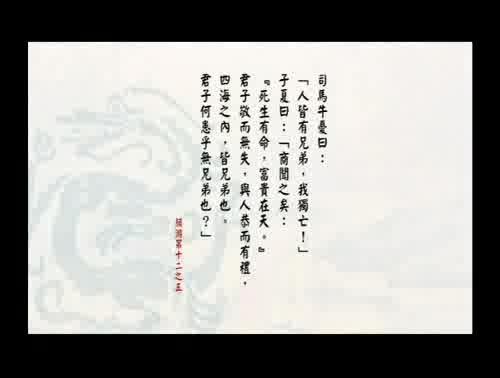 司馬牛憂曰：
「人皆有兄弟，我獨亡！」
子夏曰：「商聞之矣：
『死生有命，富貴在天。』
君子敬而無失，與人恭而有禮，
四海之內，皆兄弟也。
君子何患乎無兄弟也？」
顏淵第十二之五